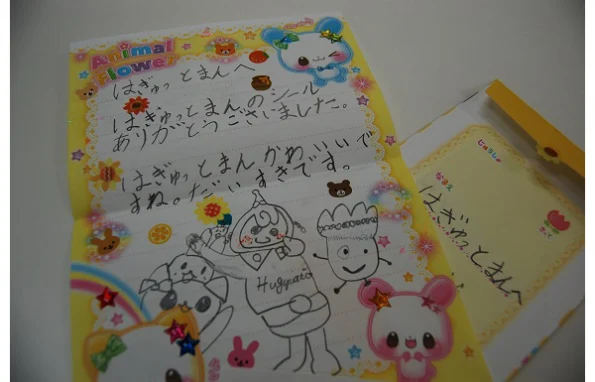 Animal
Flower
はぎゅっとまんへ
はぎゅっとまんのシール
ありがとうございました。
はぎゅっとまんかわいいで
すね。だいすきです。
Hugyutto
なまえ
はぎゅっとまんへ